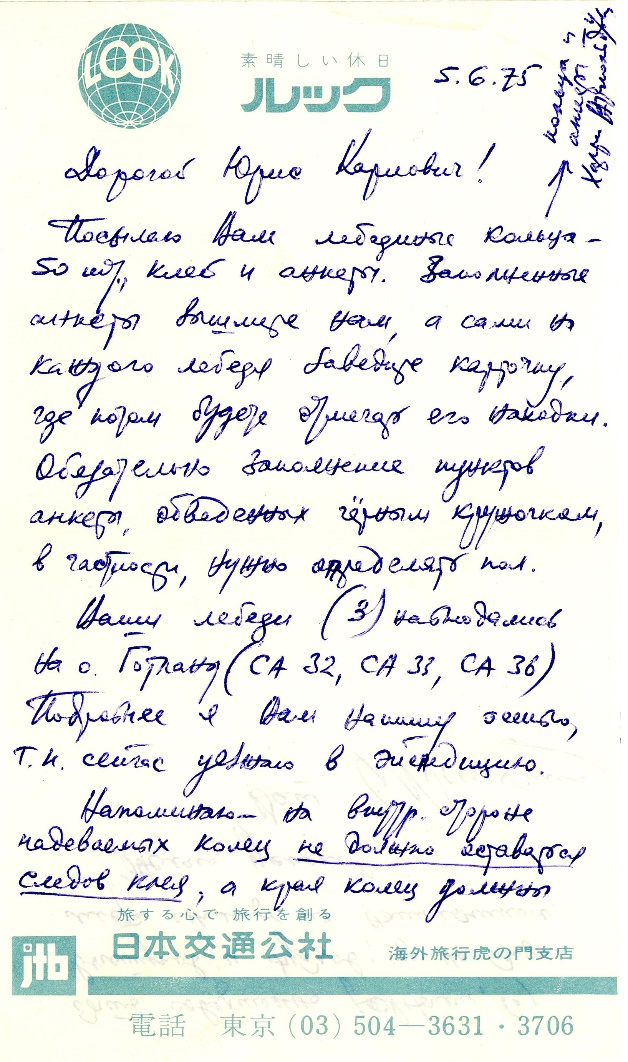 LOOK
素晴しい休日
ルック
5.6.75
кольца и
анкеты
Харри
Дорогой Юрис Карлович!
Посылаю Вам лебединые кольца –
50 шт., клей и анкеты. Заполненные
анкеты вышлите нам, а сами на
каждого лебедя заведите карточку,
где потом будете отмечать его находки.
Обязательно заполнение пунктов
анкеты, обведенных чёрным кружочком,
в частности, нужно определять пол.
Ваши лебеди (3) наблюдались
на о. Готланд (СА 32, СА 33, СА 36)
Подробнее я Вам напишу осенью,
т.к. сейчас уезжаю в экспедицию.
Напоминаю – на внутр. стороне
надеваемых колец не должно оставаться
следов клея, а края колец должны
旅する心で 旅行を創る
jtb 日本交通公社 海外旅行虎の門支店
電話 東京 (03) 504—3631・3706